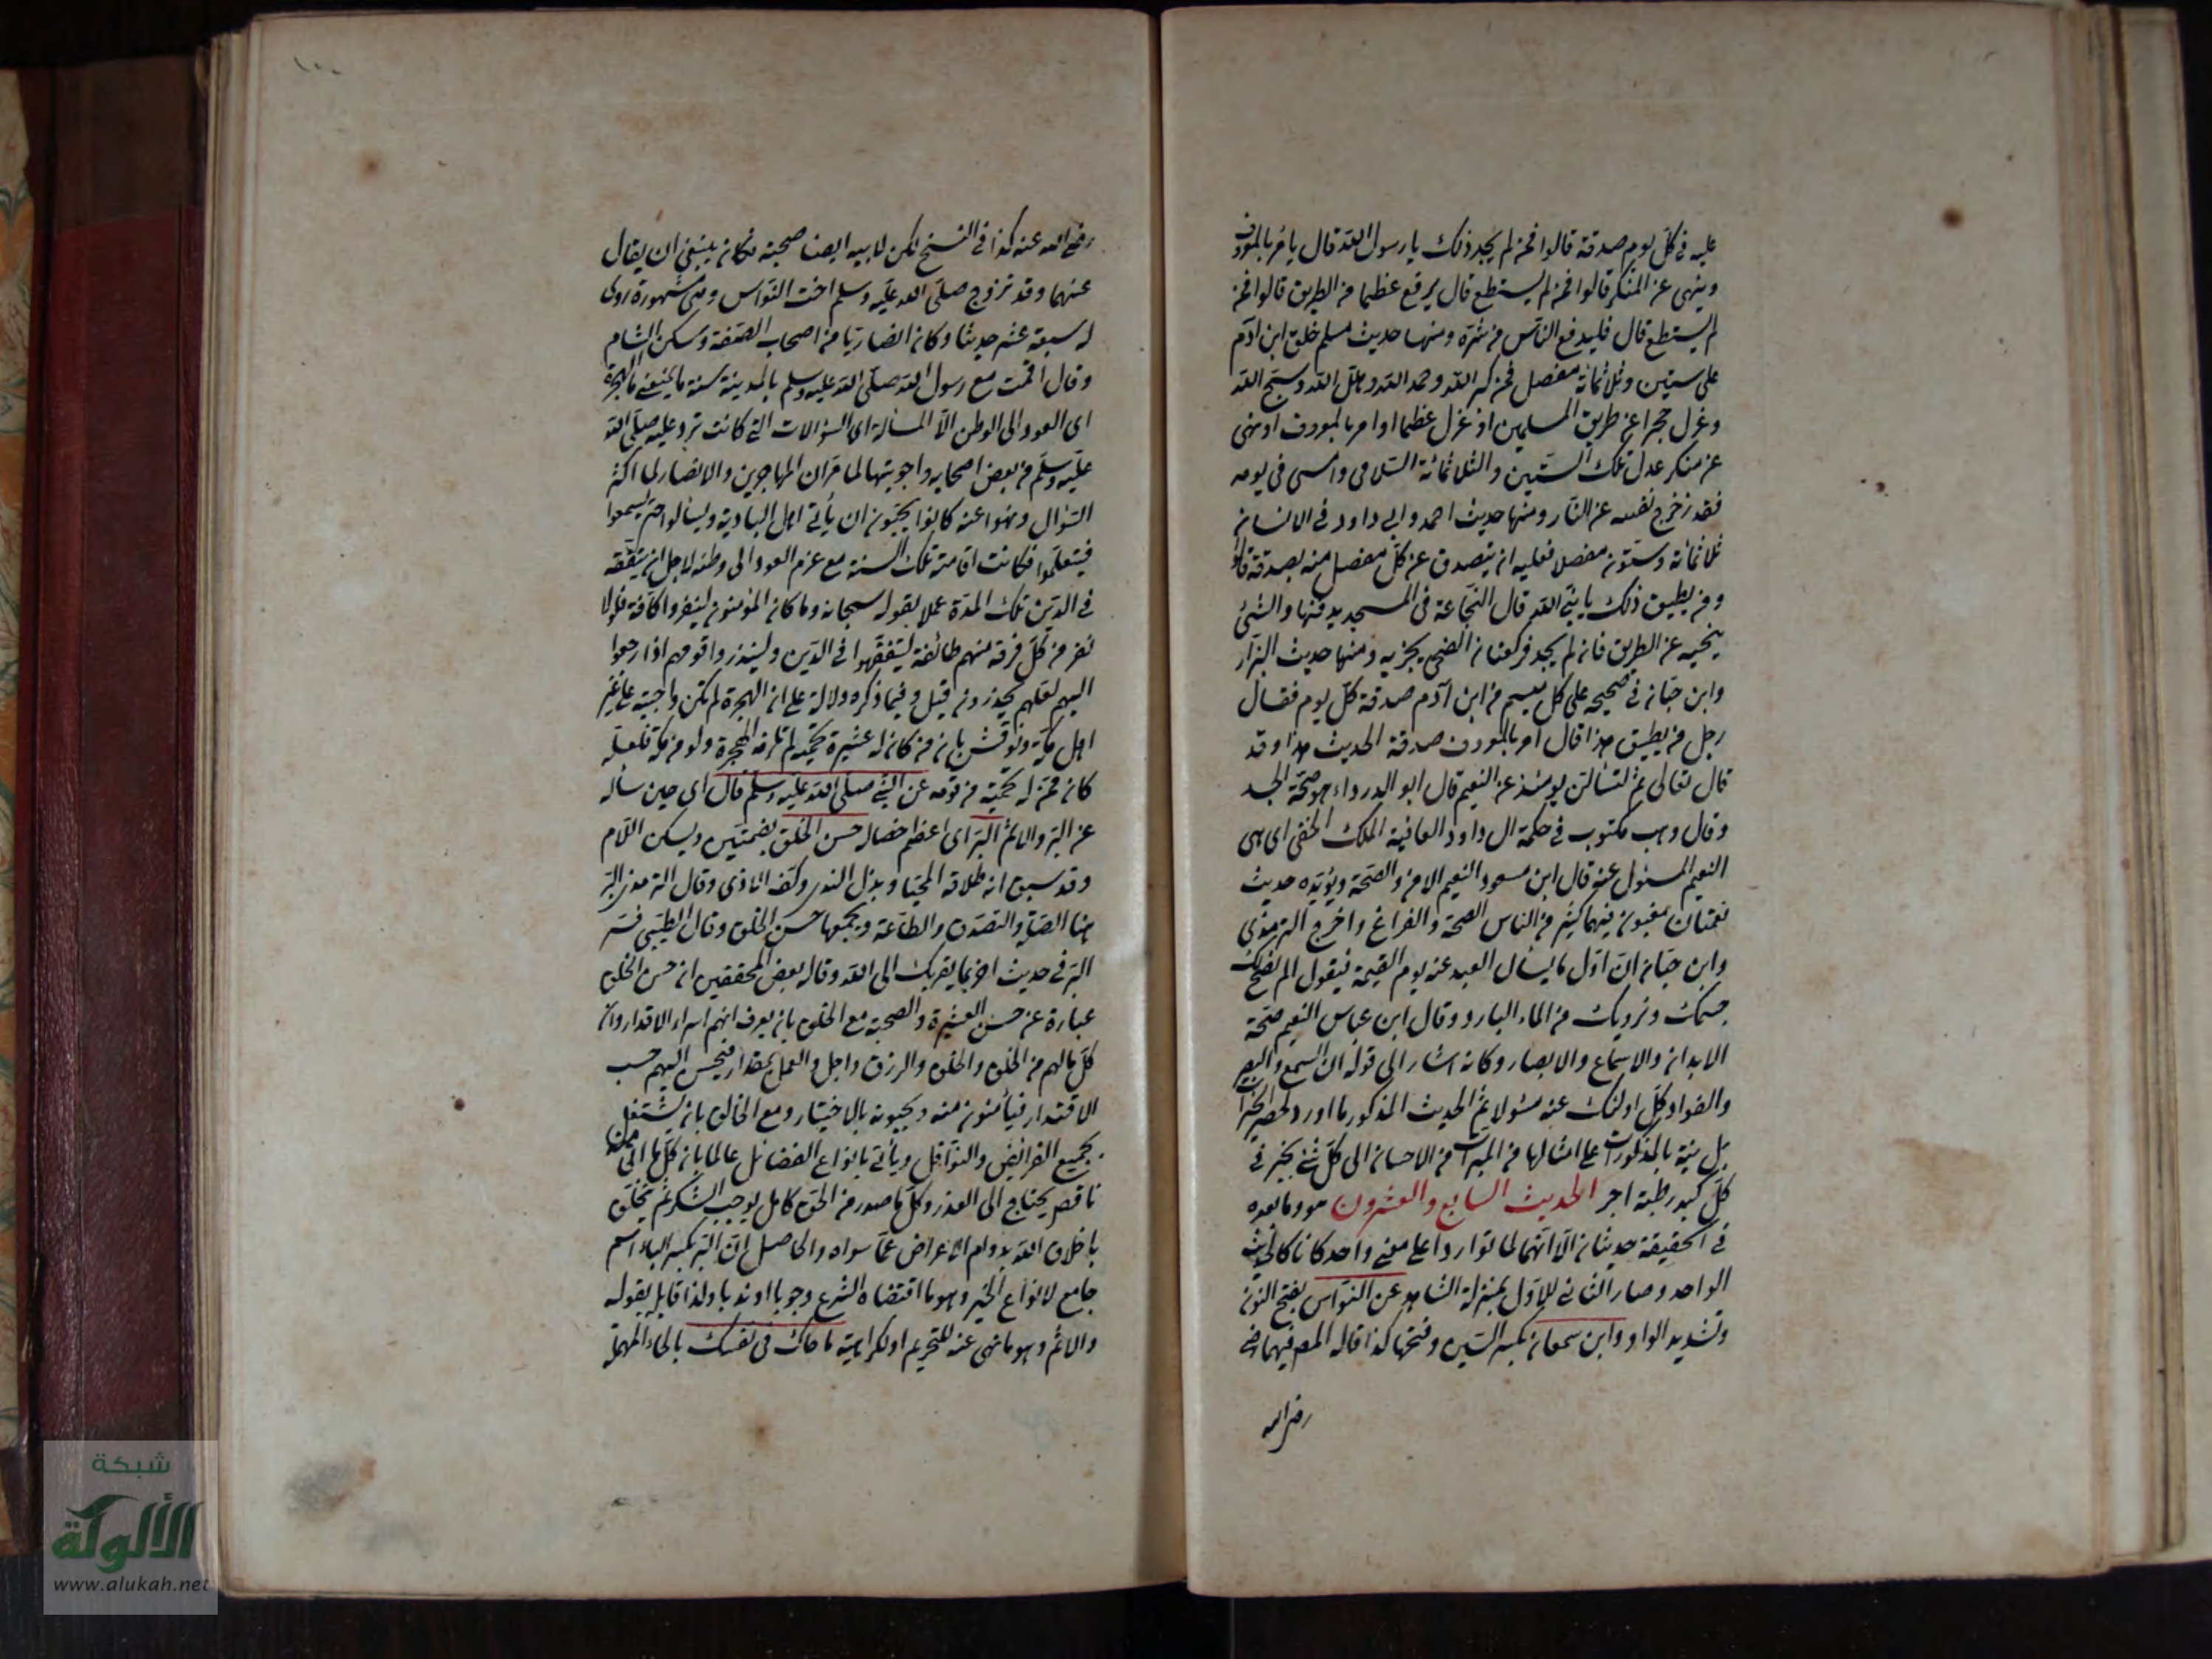 عليه في كل يوم صدقة قالوا فمن لم يجد ذلك يا رسول الله قال يأمر بالمعروف
وينهى عن المنكر قالوا فمن لم يستطع قال يرفع عظما من الطريق قالوا فمن
لم يستطع قال فليدفع الناس من شره ومنها حديث مسلم خلق ابن آدم
على ستين وثلاثمائة مفصل فمن كبر الله وحمد الله وهلل الله وسبح الله
وعزل حجرا عن طريق المسلمين او عزل عظما او امر بالمعروف او نهى
عن منكر عدل تلك الستين والثلاثمائة السلامى وامسى في يومه
فقد زحزح نفسه عن النار ومنها حديث احمد وابي داود في الانسان
ثلاثمائة وستون مفصلا فعليه ان يتصدق عن كل مفصل منه بصدقة قالوا
ومن يطيق ذلك يا نبي الله قال النخاعة في المسجد يدفنها والشئ
ينحيه عن الطريق فان لم يجد فركعتان الضحى يجزيه ومنها حديث البزار
وابن حبان في صحيحه على كل ميسم من ابن آدم صدقة كل يوم فقال
رجل من يطيق هذا قال امر بالمعروف صدقة الحديث هذا وقد
قال تعالى ثم لتسألن يومئذ عن النعيم قال ابو الدرداء هو صحة الجسد
وقال وهب مكتوب في حكمة ال داود العافية الملك الخفى اى هى
النعيم المسئول عنه قال ابن مسعود النعيم الامن والصحة ويؤيده حديث
نعمتان مغبون فيهما كثير من الناس الصحة والفراغ واخرج الترمذى
وابن حبان ان اول ما يسأل العبد عنه يوم القيمة فيقول الم نصح لك
جسمك ونرويك من الماء البارد وقال ابن عباس النعيم صحة
الابدان والاسماع والابصار وكانه اشار الى قوله ان السمع والبصر
والفؤاد كل اولئك عنه مسئولا ثم الحديث المذكور ما اورد لحصر الخيرات
بل نبه بالمذكورات على امثالها من المبرات من الاحسان الى كل شئ بخير في
كل كبد رطبة اجر الحديث السابع والعشرون هو وما بعده
في الحقيقة حديثان الا انهما لما تواردا على معنى واحد كانا كالحديث
الواحد وصار الثاني للاول بمنزلة الشاهد عن النواس بفتح النون
وتشديد الواو وابن سمعان بكسر السين وفتحها كذا قاله المص فيهما رضي
رضي الله
رضي الله عنه كذا في النسخ لكن لابيه ايضا صحبة فكان ينبغي ان يقال
عنهما وقد تزوج صلى الله عليه وسلم اخت النواس وهى مشهورة روى
له سبعة عشر حديثا وكان انصاريا من اصحاب الصفة وسكن الشام
وقال اقمت مع رسول الله صلى الله عليه وسلم بالمدينة سنة ما يمنعني من الهجرة
اى العود الى الوطن الا المسألة اى السؤالات التي كانت ترد عليه صلى الله
عليه وسلم من بعض اصحابه واجوبتها لما مر ان المهاجرين والانصار لما اكثر
السؤال ونهوا عنه كانوا يحبون ان يأتي اهل البادية ويسألوا حتى يسمعوا
فيتعلموا فكانت اقامته تلك السنة مع عزم العود الى وطنه لاجل ان يتفقه
في الدين تلك المدة عملا بقوله سبحانه وما كان المؤمنون لينفروا كافة فلولا
نفر من كل فرقة منهم طائفة ليتفقهوا في الدين ولينذروا قومهم اذا رجعوا
اليهم لعلهم يحذرون قيل وفيما ذكره دلالة على ان الهجرة لم تكن واجبة على غير
اهل مكة ونوقش بان من كان له عشيرة تحميه لم تلزمه الهجرة ولو من مكة فلعله
كان ممن له تحمية من قومه عن النبي صلى الله عليه وسلم قال اى حين سأله
عن البر والاثم البر اى اعظم خصاله حسن الخلق بضمتين ويسكن اللام
وقد سبق انه طلاقة المحيا وبذل الندى وكف الاذى وقال الترمذى البر
هنا الصلة والتصدق والطاعة ويجمعها حسن الخلق وقال الطيبي فسر
البر في حديث اخر بما يقربك الى الله وقال بعض المحققين ان حسن الخلق
عبارة عن حسن العشيرة والصحبة مع الخلق بان يعرف انهم اسراء الاقدار وان
كل ما لهم من الخلق والخلق والرزق واجل والعمل بمقدار فيحسن اليهم حسب
الاقتدار فيأمنون منه ويحبونه بالاختيار ومع الخالق بان يشتغل
بجميع الفرائض والنوافل ويأتي بانواع الفضائل عالما بان كل ما اتى منه
ناقص يحتاج الى العذر وكل ما صدر من الحق كامل يوجب الشكر ثم يتخلق
باخلاق الله بدوام الاعراض عما سواه والحاصل ان البر بكسر الباء اسم
جامع لانواع الخير وهو ما اقتضاه الشرع وجوبا او ندبا ولذا قابله بقوله
والاثم وهو ما نهى عنه للتحريم او لكراهية ما حاك في نفسك بالحاء المهملة
١٠٠
شبكة
الألوكة
www.alukah.net